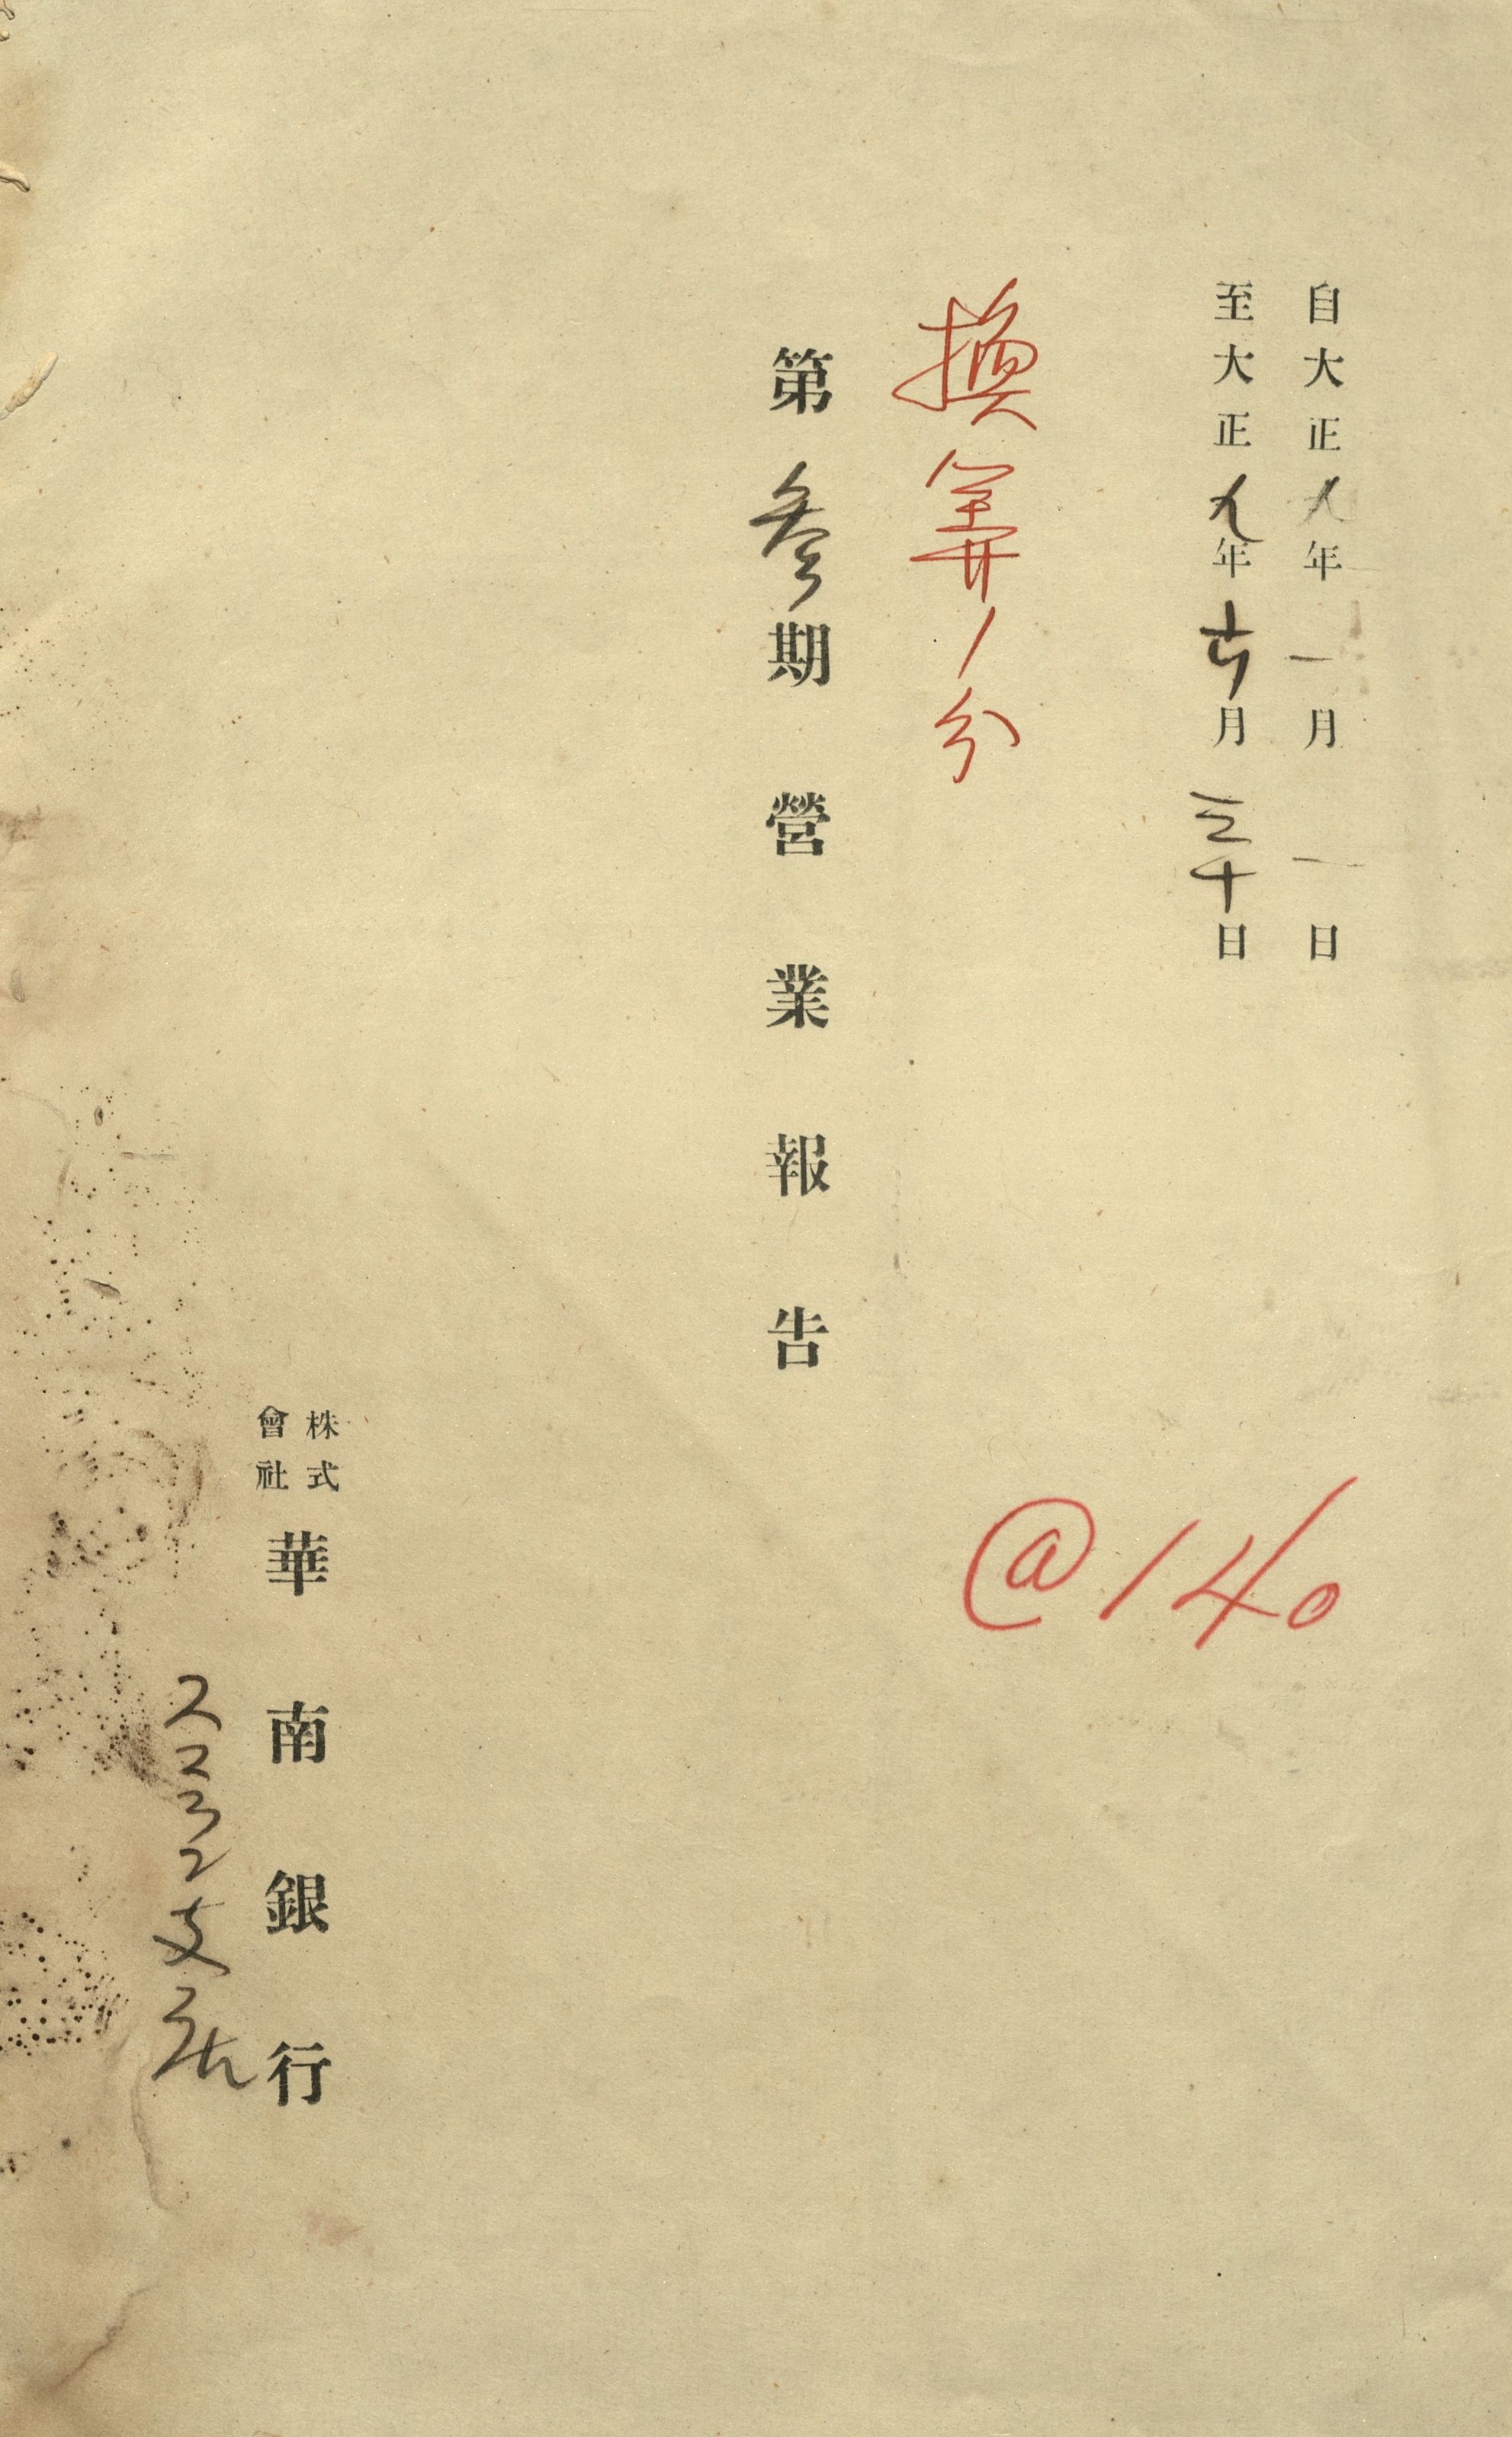 自大正九年一月一日
至大正九年六月三十日
換算ノ分
第参期營業報告
@140
株式
會社
華南銀行
スマラン支店